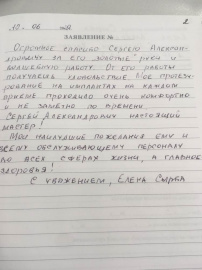 2
10. 06
ЗАЯВЛЕНИЕ №
Огромное спасибо Сергею Алексан-
дровичу за его "золотые" руки и
волшебную работу. От его работы
получаешь удовольствие. Мое протези-
рование на имплантах на каждом
приеме проходило очень комфортно
и не заметно по времени.
Сергей Александрович настоящий
мастер!
Мои наилучшие пожелания ему и
всему обслуживающему персоналу
во всех сферах жизни, а главное
здоровья!
С уважением, Елена